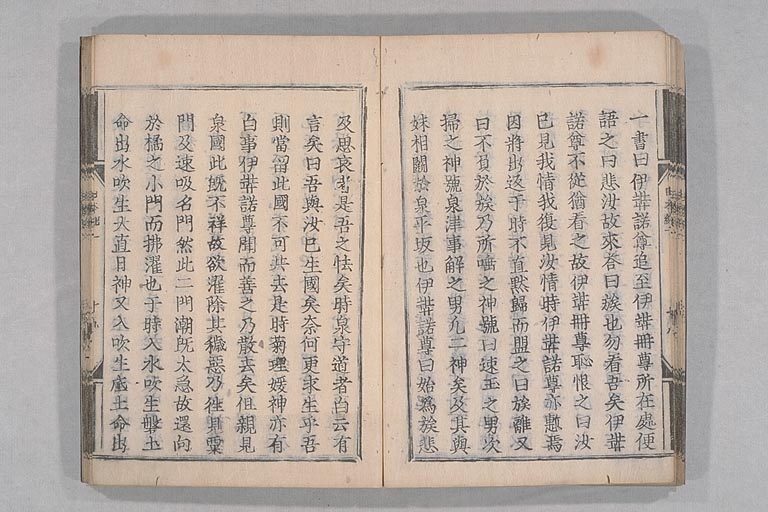 一書曰伊弉諾尊追至伊弉冊尊所在處便
語之曰悲汝故來荅曰族也勿看吾矣伊弉
諾尊不從猶看之故伊弉冊尊恥恨之曰汝
已見我情我復見汝情時伊弉諾尊亦慙焉
因將出返于時不直默歸而盟之曰族離又
曰不負於族乃所唾之神號曰速玉之男次
掃之神號泉津事解之男凡二神矣及其與
妹相鬪於泉平坂也伊弉諾尊曰始爲族悲
及思哀者是吾之怯矣時泉守道者白云有
言矣曰吾與汝已生國矣奈何更求生乎吾
則當留此國不可共去是時菊理媛神亦有
白事伊弉諾尊聞而善之乃散去矣但親見
泉國此旣不祥故欲濯除其穢惡乃徃見粟
門及速吸名門然此二門潮旣太急故還向
於橘之小門而拂濯也于時入水吹生磐土
命出水吹生大直日神又入吹生底土命出